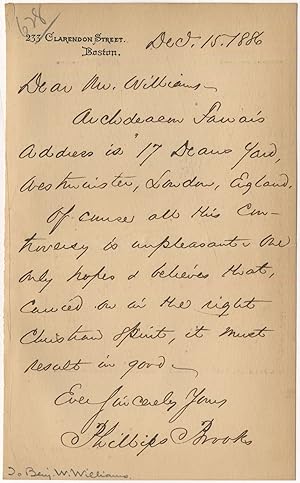 233 Clarendon Street.
Boston.
Dec. 15. 1886
Dear Mr. Williams -
Archdeacon Farrar's
Address is 17 Deans Yard,
Westminster, London, England.
Of course all this con-
troversy is unpleasant - One
only hopes & believes that,
carried on in the right
Christian Spirit, it must
result in good -
Ever Sincerely Yours
Phillips Brooks
To Benj. W. Williams.